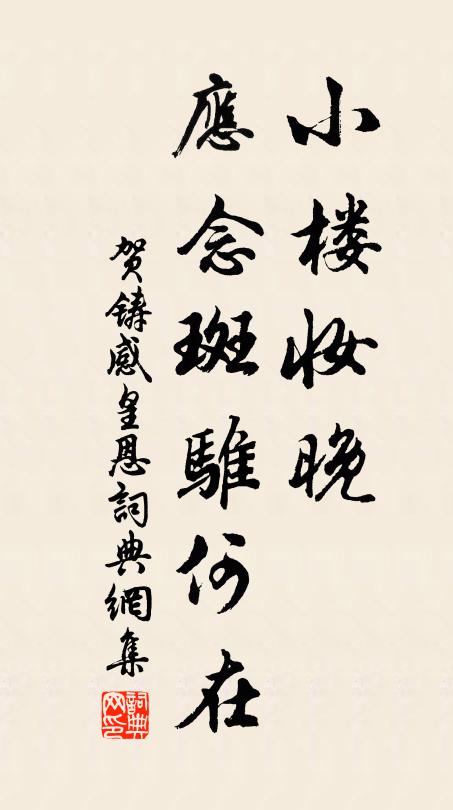 小楼妆晚
應念斑騅何在
贺鑄感皇恩詞典網集
詞典网印